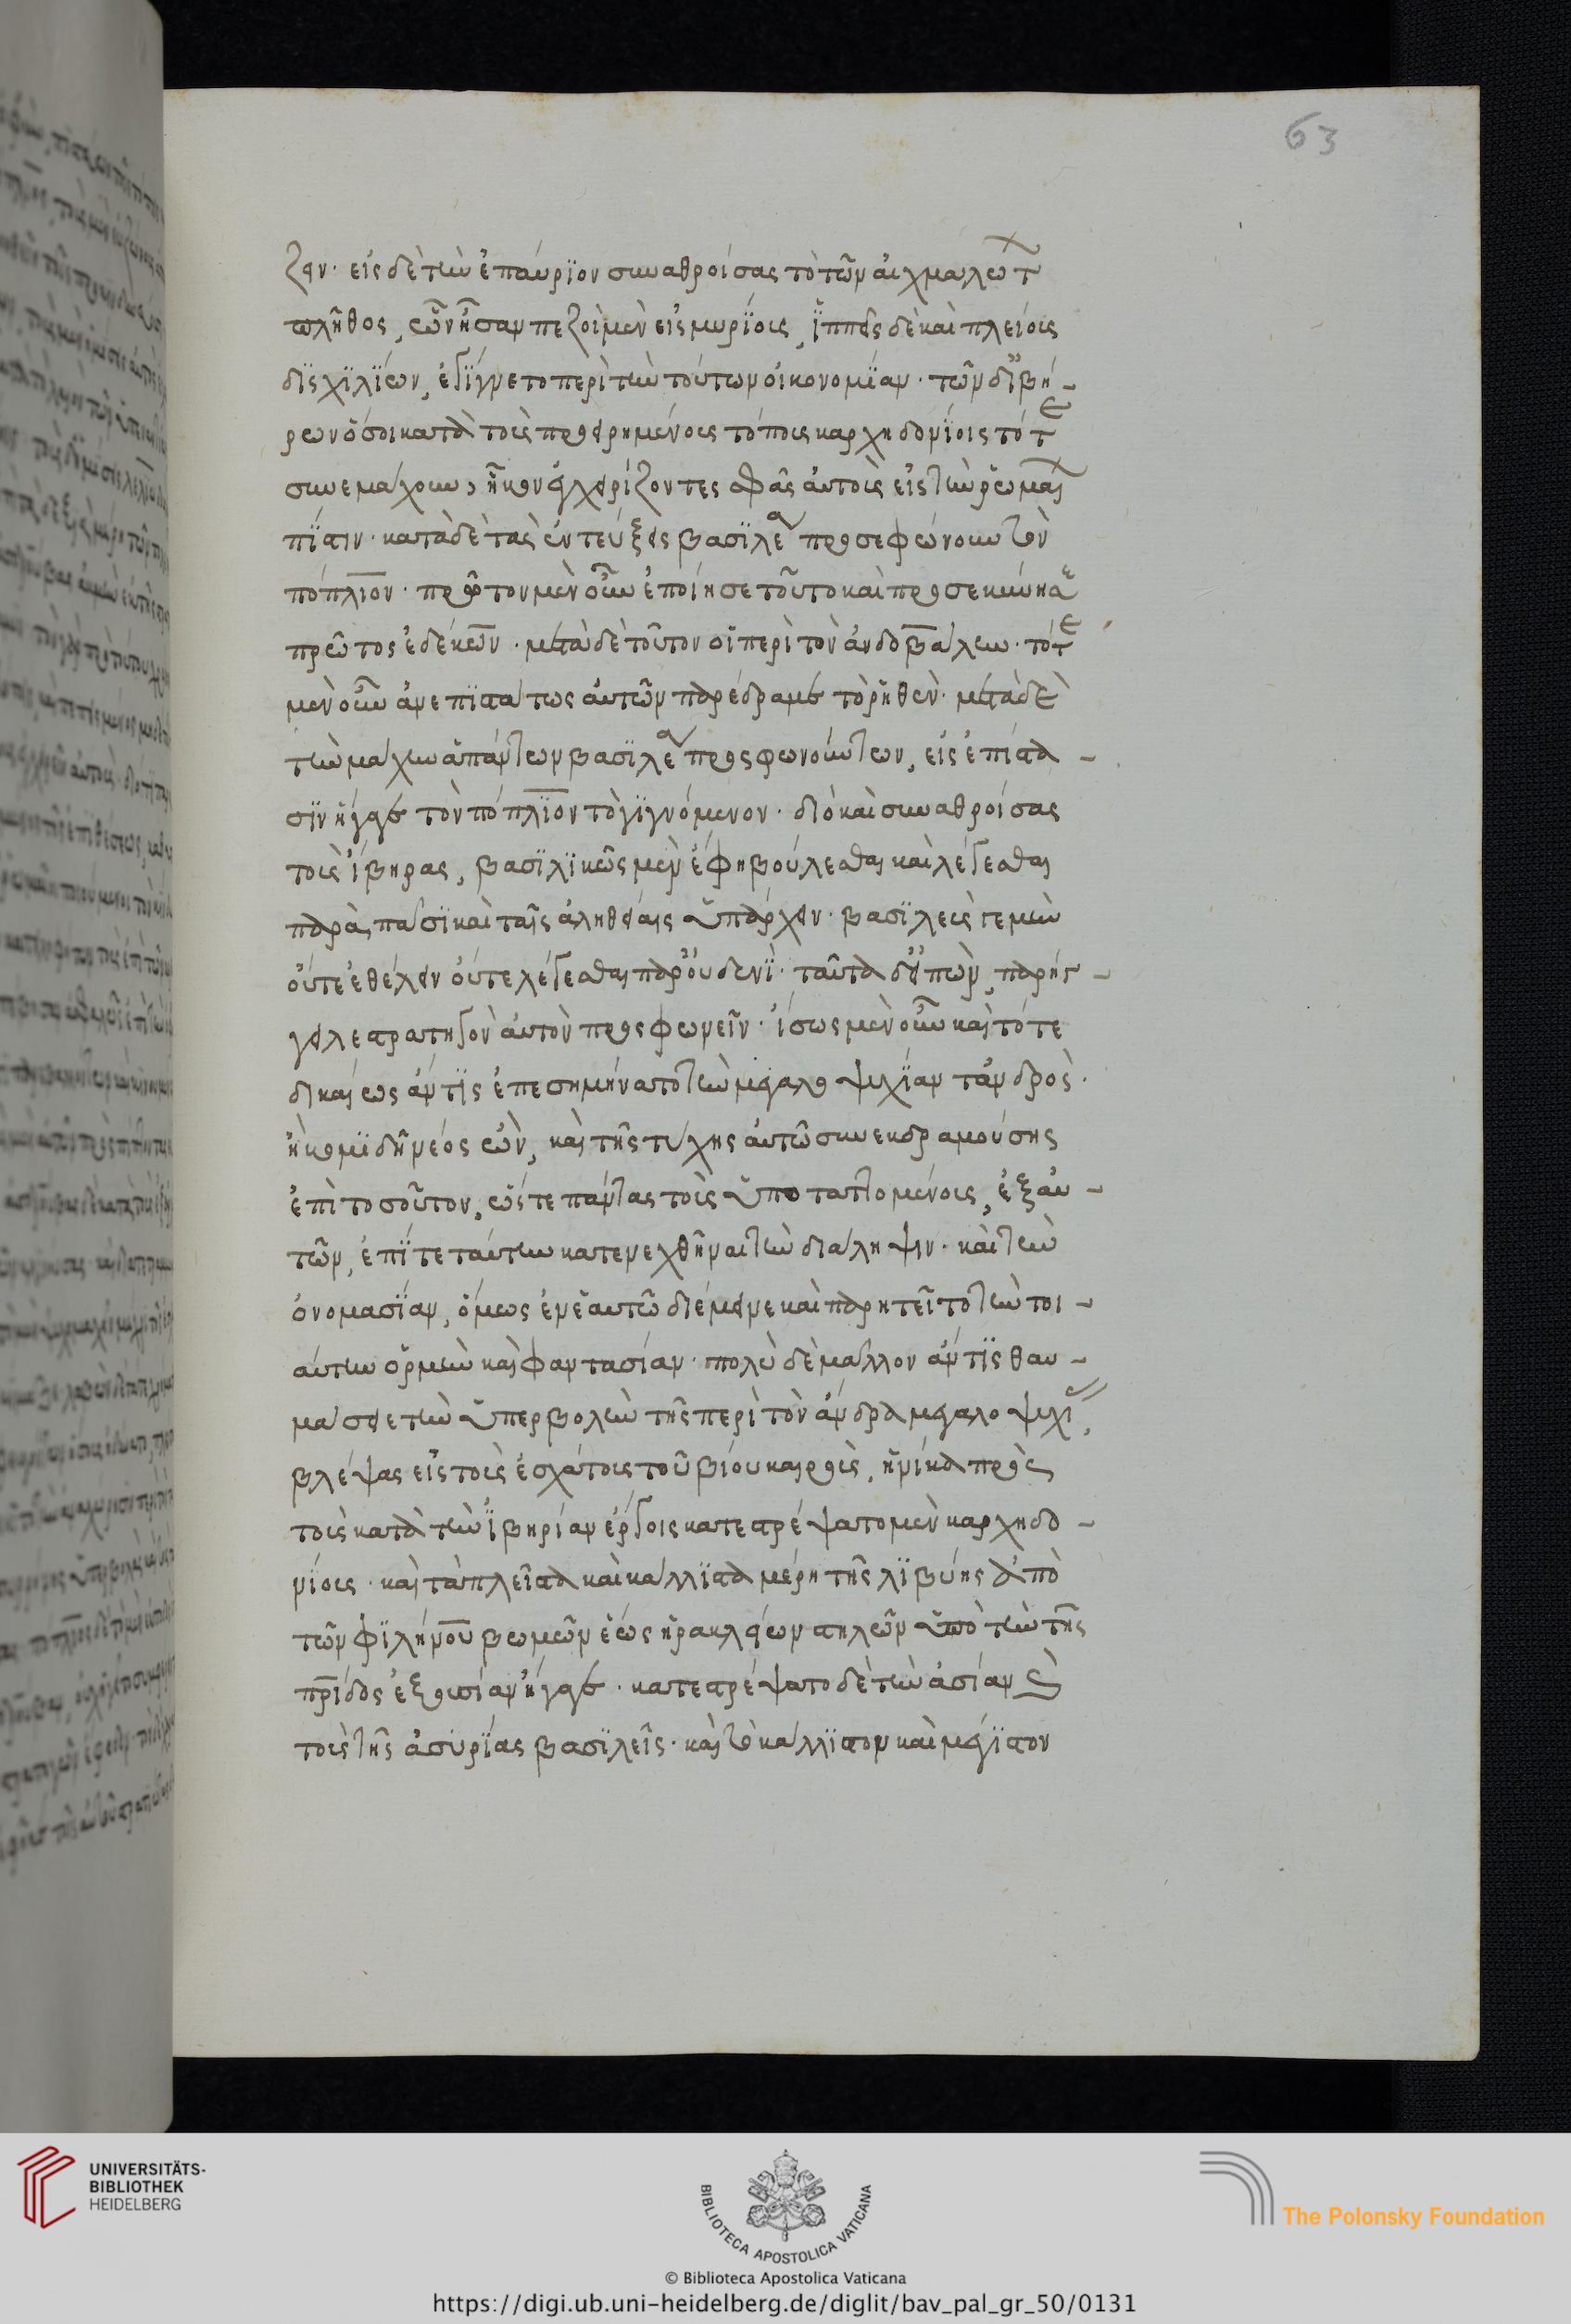 63
ζειν· εἰς δὲ τὴν ἐπαύριον συναθροίσας τὸ τῶν αἰχμαλώτ
πλῆθος, ὧν ἦσαν πεζοὶ μὲν εἰς μυρίους, ἱππεῖς δὲ καὶ πλείους
δισχιλίων, ἐγίγνετο περὶ τὴν τούτων οἰκονομίαν· τῶν δ' ἰβή-
ρων ὅσοι κατὰ τοὺς προειρημένους τόπους καρχηδονίοις τότε
συνεμάχουν, ἧκον ἐγχειρίζοντες σφᾶς αὐτοὺς εἰς τὴν ῥωμαί
πίστιν· κατὰ δὲ τὰς ἐντεύξεις βασιλέα προσεφώνουν τὸν
πόπλιον· πρῶτον μὲν οὖν ἐποίησε τοῦτο καὶ προσεκύνησε
πρῶτος ἐδεκών· μετὰ δὲ τοῦτον οἱ περὶ τὸν ἀνδοβάλην· τότε
μὲν οὖν ἀνεπιστάτως αὐτῶν παρέδραμε τὸ ῥηθέν· μετὰ δὲ
τὴν μάχην ἁπάντων βασιλέα προσφωνούντων, εἰς ἐπίστα-
σιν ἤγαγε τὸν πόπλιον τὸ γιγνόμενον· διὸ καὶ συναθροίσας
τοὺς ἴβηρας, βασιλικῶς μὲν ἔφη βούλεσθαι καὶ λέγεσθαι
παρὰ πᾶσι καὶ ταῖς ἀληθείαις ὑπάρχειν· βασιλεύς γε μὴν
οὔτε ἐθέλειν οὔτε λέγεσθαι παρ' οὐδενί· ταῦτα δ' εἰπών, παρήγ-
γειλε στρατηγὸν αὐτὸν προσφωνεῖν· ἴσως μὲν οὖν καὶ τότε
δικαίως ἄν τις ἐπεσημήνατο τὴν μεγαλοψυχίαν τἀνδρός·
ᾗ κομιδῇ νέος ὤν, καὶ τῆς τύχης αὐτῷ συνεκδραμούσης
ἐπὶ τοσοῦτον, ὥστε πάντας τοὺς ὑποταττομένους, ἐξ αὐ-
τῶν, ἐπί τε ταύτην κατενεχθῆναι τὴν διάληψιν· καὶ τὴν
ὀνομασίαν, ὅμως ἐν ἑαυτῷ διέμεινε καὶ παρῃτεῖτο τὴν τοι-
αύτην ὁρμὴν καὶ φαντασίαν· πολὺ δὲ μᾶλλον ἄν τις θαυ-
μάσειε τὴν ὑπερβολὴν τῆς περὶ τὸν ἄνδρα μεγαλοψυχί,
βλέψας εἰς τοὺς ἐσχάτους τοῦ βίου καιρούς, ἡνίκα πρὸς
τοῖς κατὰ τὴν ἰβηρίαν ἔργοις κατεστρέψατο μὲν καρχηδο-
νίους· καὶ τὰ πλεῖστα καὶ κάλλιστα μέρη τῆς λιβύης ἀπὸ
τῶν φιλήνου βωμῶν ἕως ἡρακλείων στηλῶν ὑπὸ τὴν τῆς
πρίδος ἐξουσίαν ἤγαγε· κατεστρέψατο δὲ τὴν ἀσίαν καὶ
τοὺς τῆς ἀσυρίας βασιλεῖς· καὶ τὸ κάλλιστον καὶ μέγιστον
UNIVERSITÄTS-
BIBLIOTHEK
HEIDELBERG
BIBLIOTECA APOSTOLICA VATICANA
The Polonsky Foundation
© Biblioteca Apostolica Vaticana
https://digi.ub.uni-heidelberg.de/diglit/bav_pal_gr_50/0131